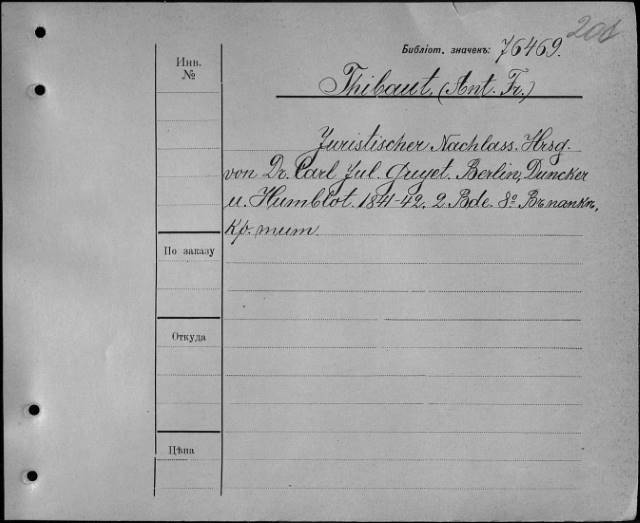 201
Библіот. значенъ: 76469.
Инв.
№
Thibaut. (Ant. Fr.)
Juristischer Nachlass. Hrsg.
von Dr. Carl Jul. Guyet. Berlin, Duncker
u. Humblot. 1841-42. 2 Bde. 8º Въ папкѣ,
кр. тит.
По заказу
Откуда
Цѣна